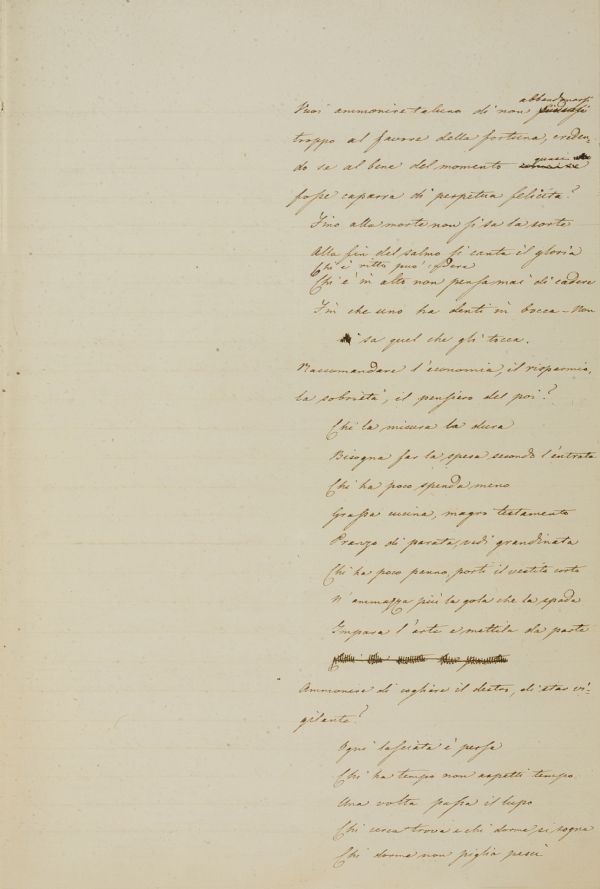 Vuoi ammonire taluno di non abbandonarsi
troppo al favore della fortuna, creden-
do se al bene del momento quasi
fosse caparra di perpetua felicità?
Fino alla morte non si sa la sorte
Alla fin del salmo si canta il gloria
Chi è ritto può cadere
Chi è in alto non pensa mai di cadere
Fin che uno ha denti in bocca – Non
sa quel che gli tocca.
Raccomandare l'economia, il risparmio,
la sobrietà, il pensiero del poi?
Chi la misura la dura
Bisogna far la spesa secondo l'entrata
Chi ha poco spenda meno
Grassa cucina, magro testamento
Pranzo di parata, vedi grandinata
Chi ha poco panno, porti il vestito corto
N'ammazza più la gola che la spada
Impara l'arte e mettila da parte
Ammonire di cogliere il destro, di star vi-
gilante?
Ogni lasciata è persa
Chi ha tempo non aspetti tempo
Una volta passa il lupo
Chi cerca trova e chi dorme si sogna
Chi dorme non piglia pesci